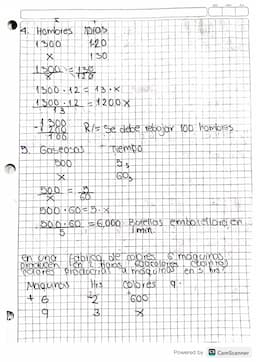 4. Hombres Días
1300 120
x 130
1300 = 130
x 120
1300 · 12 = 13 · x
1300 · 12 = 1200 x
13
1300
- 1200 R/= Se debe rebajar 100 hombres.
100
5. Gaseosas Tiempo
500 5s
x 60s
500 = 5
x 60
500 · 60 = 5 · x
500 · 60 = 6,000 Botellas embotelladoras en
5 1 min.
En una fábrica de colores 6 maquinas
producen en 2 horas colores cuantos
colores producirán 9 maquinas en 3 hrs?
Maquinas Hrs colores 9.
+ 6 2 600
9 3 x
Powered by CamScanner